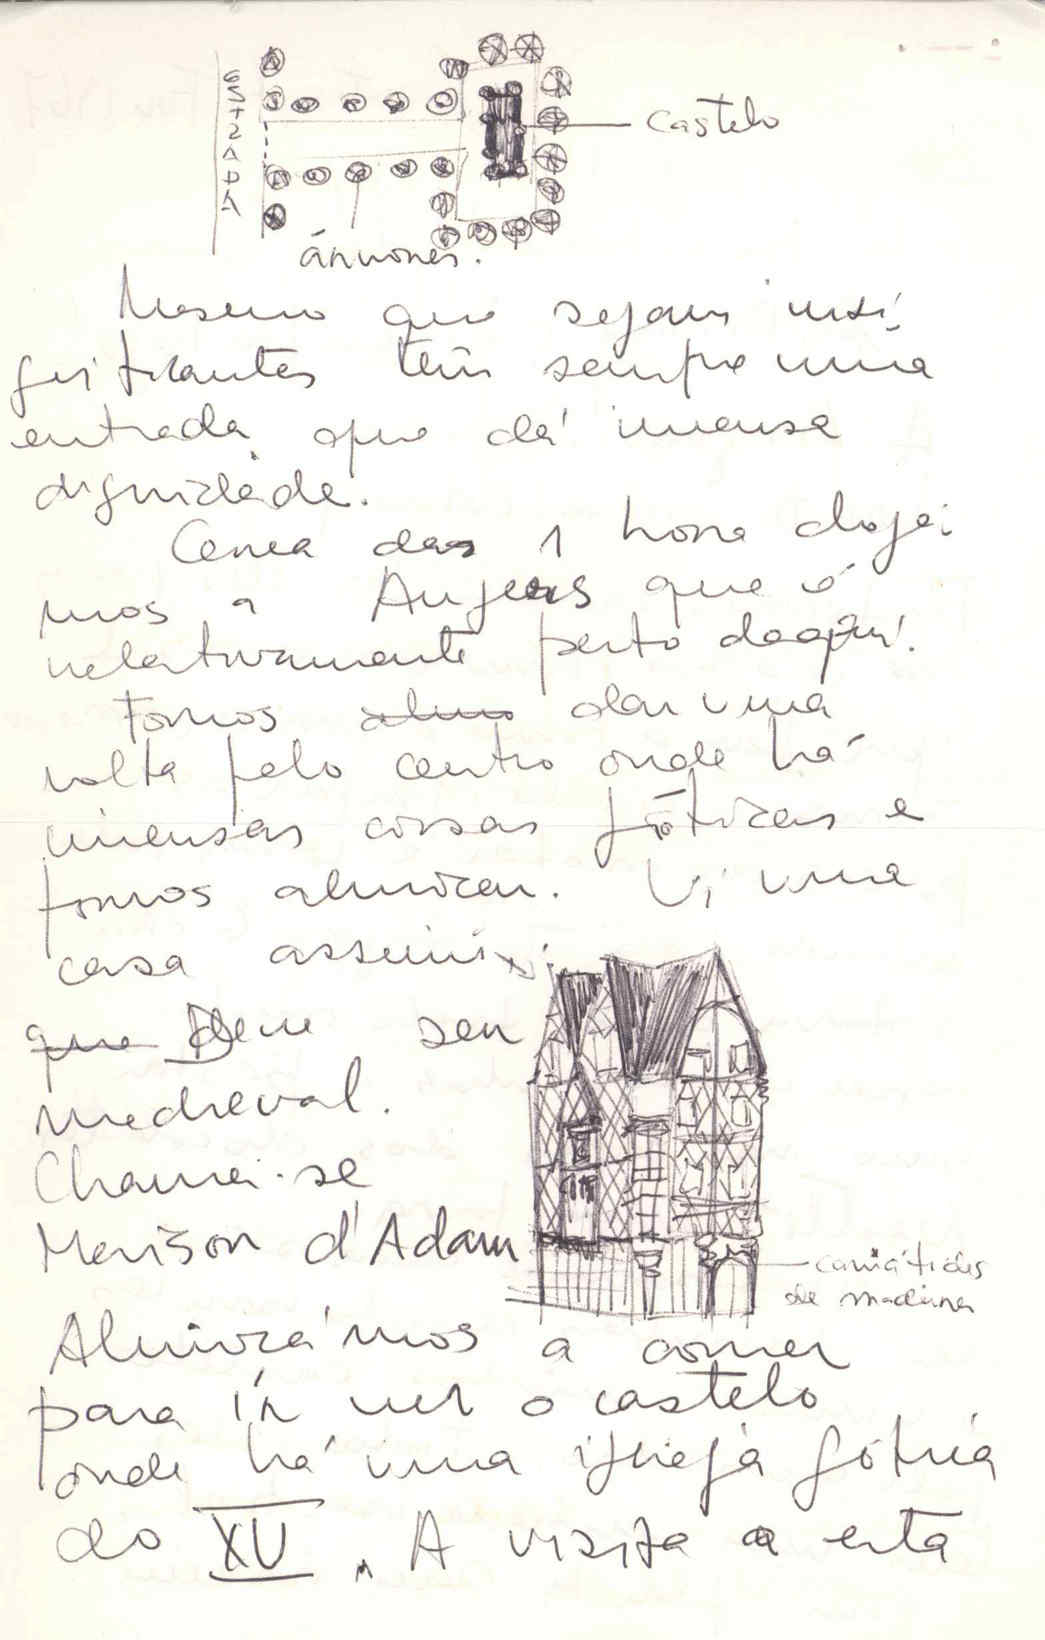 ESTRADA
castelo
árvores.
Mesmo que sejam insi-
gnificantes têm sempre uma
entrada que dá imensa
dignidade.
Cerca das 1 hora chega
mos a Angers que é
relativamente perto daqui.
Fomos almo dar uma
volta pelo centro onde há
imensas coisas góticas e
fomos almoçar. Vi uma
casa assim:
que Deve ser
medieval.
Chama-se
Maison d'Adam
cariátides
de madeira
Almoçámos a correr
para ir ver o castelo
onde há uma igreja gótica
do XV. A visita a esta